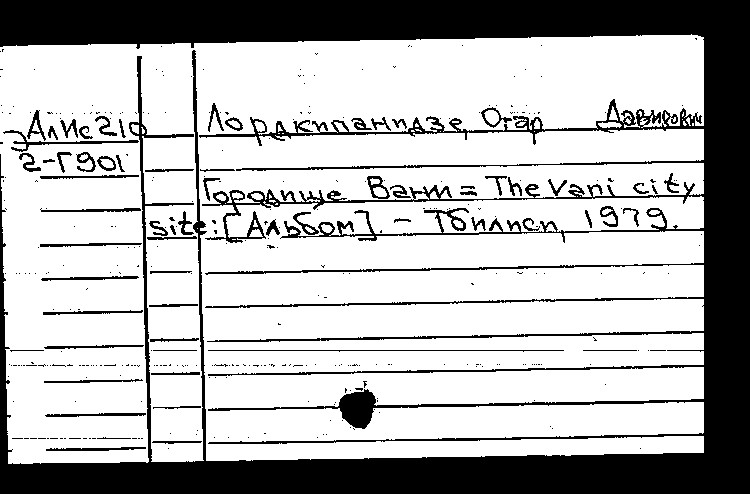 ЭАлИс210
2-Г901
Лордкипанидзе, Отар Давидович
Городище Вани = The Vani city
site: [Альбом]. - Тбилиси, 1979.